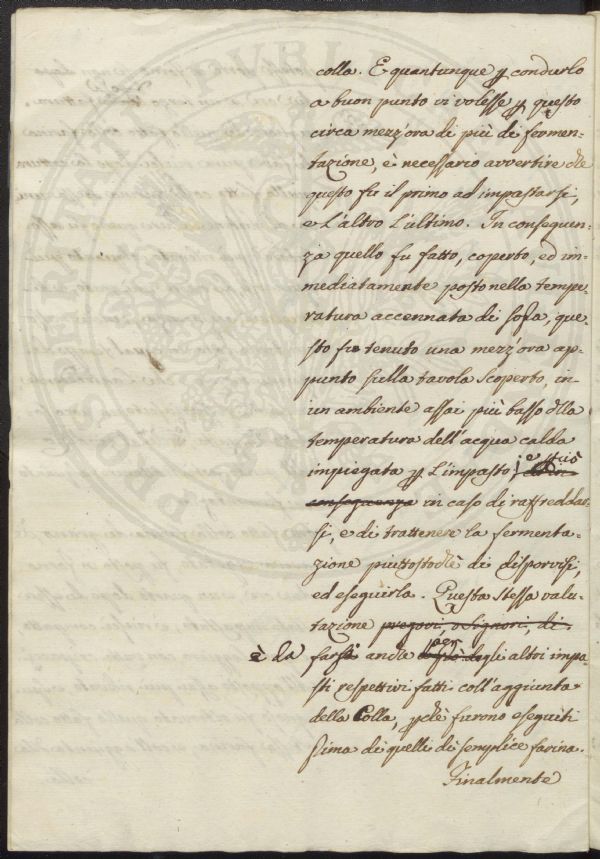 colla. E quantunque p condurlo
a buon punto vi volesse p questo
circa mezz'ora di più di fermen-
tazione, è necessario avvertire che
questo fu il primo ad impastarsi,
e l'altro l'ultimo. In conseguen-
za quello fu fatto, coperto, ed im-
mediatamente posto nella tempe-
ratura accennata di sopra, que-
sto fu tenuto una mezz'ora ap-
punto sulla tavola scoperto, in
un ambiente assai più basso della
temperatura dell'acqua calda
impiegata p l'impasto; e p ciò
conseguenza in caso di raffreddar-
si, e di trattenere la fermenta-
zione piuttostochè di disporvisi,
ed eseguirla. Questa stessa valu-
tazione pregovi, o Signori, di
è da farsi anche per gli altri impa-
sti respettivi fatti coll'aggiunta
della Colla, pchè furono eseguiti
prima di quelli di semplice farina.
Finalmente